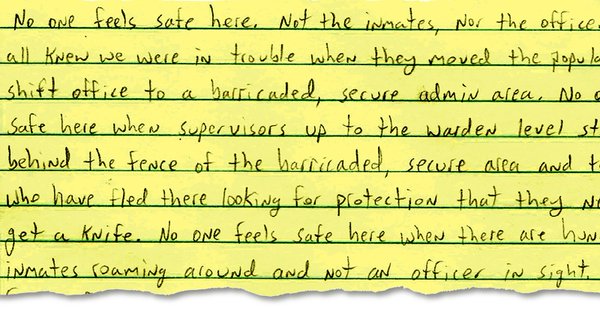 No one feels safe here. Not the inmates, nor the office
all knew we were in trouble when they moved the popula
shift office to a barricaded, secure admin area. No o
safe here when supervisors up to the warden level st
behind the fence of the barricaded, secure area and t
who have fled there looking for protection that they n
get a knife. No one feels safe here when there are hun
inmates roaming around and not an officer in sight.